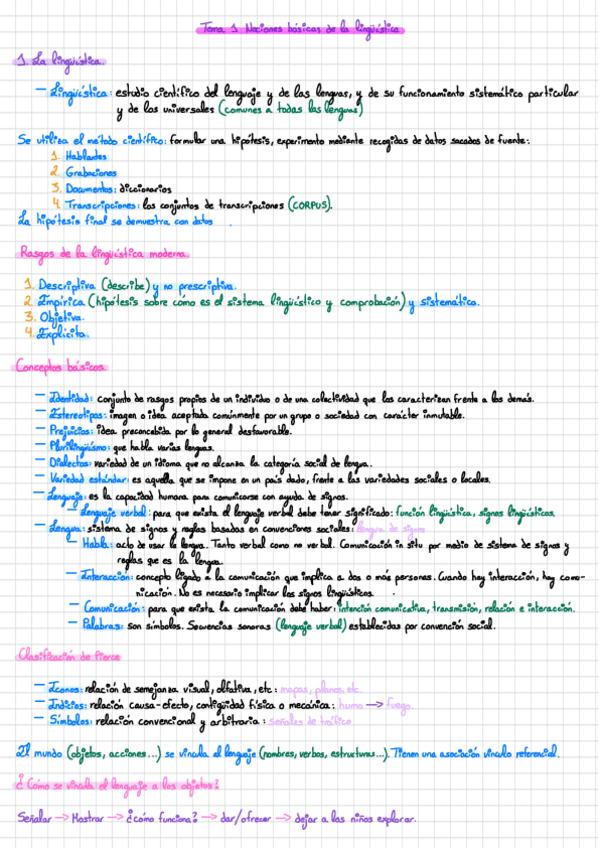 Tema 1 Nociones básicas de la lingüística
1. La lingüística.
– Lingüística: estudio científico del lenguaje y de las lenguas, y de su funcionamiento sistemático particular
y de los universales (comunes a todas las lenguas)
Se utiliza el método científico: formular una hipótesis, experimento mediante recogidas de datos sacados de fuente:
1. Hablantes
2. Grabaciones
3. Documentos: diccionarios
4. Transcripciones: los conjuntos de transcripciones (CORPUS).
La hipótesis final se demuestra con datos.
Rasgos de la lingüística moderna.
1. Descriptiva (describe) y no prescriptiva.
2. Empírica (hipótesis sobre cómo es el sistema lingüístico y comprobación) y sistemática.
3. Objetiva.
4. Explícita.
Conceptos básicos.
– Identidad: conjunto de rasgos propios de un individuo o de una colectividad que los caracterizan frente a los demás.
– Estereotipos: imagen o idea aceptada comúnmente por un grupo o sociedad con carácter inmutable.
– Prejuicios: idea preconcebida por lo general desfavorable.
– Plurilingüismo: que habla varias lenguas.
– Dialectos: variedad de un idioma que no alcanza la categoría social de lengua.
– Variedad estándar: es aquella que se impone en un país dado, frente a las variedades sociales o locales.
– Lenguaje: es la capacidad humana para comunicarse con ayuda de signos.
– Lenguaje verbal: para que exista el lenguaje verbal debe tener significado: función lingüística, signos lingüísticos.
– Lengua: sistema de signos y reglas basadas en convenciones sociales: lengua de signos
– Habla: acto de usar la lengua. Tanto verbal como no verbal. Comunicación in situ por medio de sistema de signos y
reglas que es la lengua.
– Interacción: concepto ligado a la comunicación que implica a dos o más personas. Cuando hay interacción, hay comu-
nicación. No es necesario implicar los signos lingüísticos.
– Comunicación: para que exista la comunicación debe haber: intención comunicativa, transmisión, relación e interacción.
– Palabras: son símbolos. Secuencias sonoras (lenguaje verbal) establecidas por convención social.
Clasificación de Pierce
– Iconos: relación de semejanza visual, olfativa, etc: mapas, planos, etc.
– Indicios: relación causa-efecto, contigüidad física o mecánica: humo → fuego.
– Símbolos: relación convencional y arbitraria: señales de tráfico
El mundo (objetos, acciones...) se vincula el lenguaje (nombres, verbos, estructuras...). Tienen una asociación vínculo referencial.
¿Cómo se vincula el lenguaje a los objetos?
Señalar → Mostrar → ¿cómo funciona? → dar/ofrecer → dejar a los niños explorar.